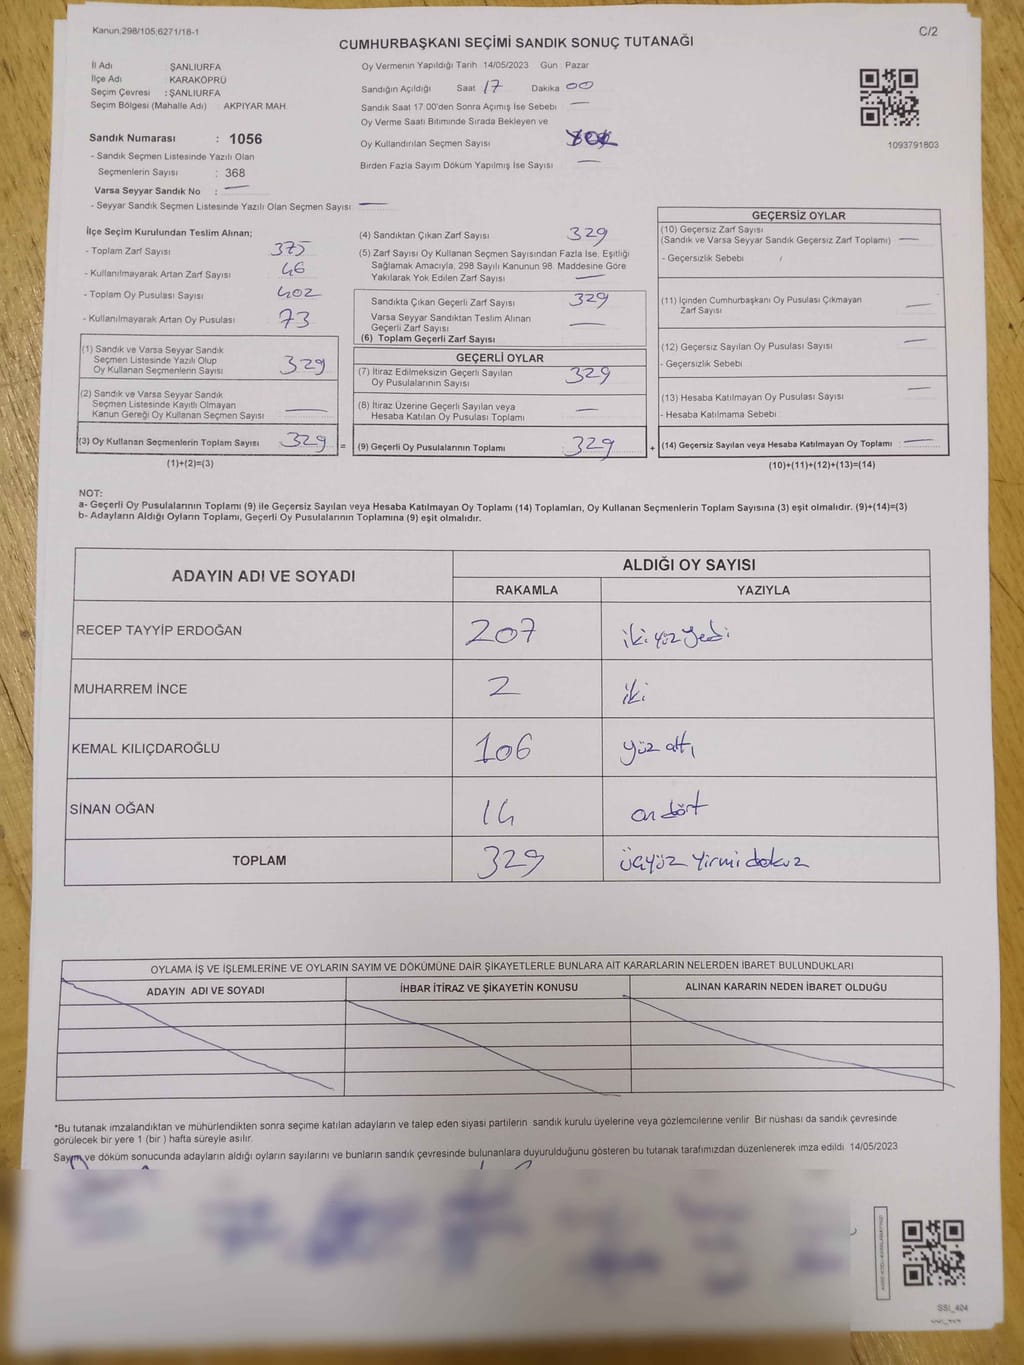 Kanun:298/105;6271/18-1
C/2
CUMHURBAŞKANI SEÇİMİ SANDIK SONUÇ TUTANAĞI
İl Adı : ŞANLIURFA
İlçe Adı : KARAKÖPRÜ
Seçim Çevresi : ŞANLIURFA
Seçim Bölgesi (Mahalle Adı) : AKPIYAR MAH.
Sandık Numarası : 1056
- Sandık Seçmen Listesinde Yazılı Olan
Seçmenlerin Sayısı : 368
Varsa Seyyar Sandık No : —
- Seyyar Sandık Seçmen Listesinde Yazılı Olan Seçmen Sayısı: —
Oy Vermenin Yapıldığı Tarih 14/05/2023 Gün : Pazar
Sandığın Açıldığı Saat 17 Dakika 00
Sandık Saat 17.00'den Sonra Açımış İse Sebebi —
Oy Verme Saati Bitiminde Sırada Bekleyen ve
Oy Kullandırılan Seçmen Sayısı
Birden Fazla Sayım Döküm Yapılmış İse Sayısı —
1093791803
İlçe Seçim Kurulundan Teslim Alınan;
- Toplam Zarf Sayısı 375
- Kullanılmayarak Artan Zarf Sayısı 46
- Toplam Oy Pusulası Sayısı 402
- Kullanılmayarak Artan Oy Pusulası 73
(1) Sandık ve Varsa Seyyar Sandık
Seçmen Listesinde Yazılı Olup
Oy Kullanan Seçmenlerin Sayısı 329
(2) Sandık ve Varsa Seyyar Sandık
Seçmen Listesinde Kayıtlı Olmayan
Kanun Gereği Oy Kullanan Seçmen Sayısı —
(3) Oy Kullanan Seçmenlerin Toplam Sayısı 329 =
(1)+(2)=(3)
(4) Sandıktan Çıkan Zarf Sayısı 329
(5) Zarf Sayısı Oy Kullanan Seçmen Sayısından Fazla İse, Eşitliği
Sağlamak Amacıyla, 298 Sayılı Kanunun 98. Maddesine Göre
Yakılarak Yok Edilen Zarf Sayısı —
Sandıkta Çıkan Geçerli Zarf Sayısı 329
Varsa Seyyar Sandıktan Teslim Alınan
Geçerli Zarf Sayısı —
(6) Toplam Geçerli Zarf Sayısı
GEÇERLİ OYLAR
(7) İtiraz Edilmeksizin Geçerli Sayılan
Oy Pusulalarının Sayısı 329
(8) İtiraz Üzerine Geçerli Sayılan veya
Hesaba Katılan Oy Pusulası Toplamı —
(9) Geçerli Oy Pusulalarının Toplamı 329 +
GEÇERSİZ OYLAR
(10) Geçersiz Zarf Sayısı
(Sandık ve Varsa Seyyar Sandık Geçersiz Zarf Toplamı) —
- Geçersizlik Sebebi
(11) İçinden Cumhurbaşkanı Oy Pusulası Çıkmayan
Zarf Sayısı —
(12) Geçersiz Sayılan Oy Pusulası Sayısı —
- Geçersizlik Sebebi
(13) Hesaba Katılmayan Oy Pusulası Sayısı —
- Hesaba Katılmama Sebebi
(14) Geçersiz Sayılan veya Hesaba Katılmayan Oy Toplamı —
(10)+(11)+(12)+(13)=(14)
NOT:
a- Geçerli Oy Pusulalarının Toplamı (9) ile Geçersiz Sayılan veya Hesaba Katılmayan Oy Toplamı (14) Toplamları, Oy Kullanan Seçmenlerin Toplam Sayısına (3) eşit olmalıdır. (9)+(14)=(3)
b- Adayların Aldığı Oyların Toplamı, Geçerli Oy Pusulalarının Toplamına (9) eşit olmalıdır.
ADAYIN ADI VE SOYADI
ALDIĞI OY SAYISI
RAKAMLA YAZIYLA
RECEP TAYYİP ERDOĞAN 207 iki yüz yedi
MUHARREM İNCE 2 iki
KEMAL KILIÇDAROĞLU 106 yüz altı
SİNAN OĞAN 14 on dört
TOPLAM 329 üçyüz yirmi dokuz
OYLAMA İŞ VE İŞLEMLERİNE VE OYLARIN SAYIM VE DÖKÜMÜNE DAİR ŞİKAYETLERLE BUNLARA AİT KARARLARIN NELERDEN İBARET BULUNDUKLARI
ADAYIN ADI VE SOYADI İHBAR İTİRAZ VE ŞİKAYETİN KONUSU ALINAN KARARIN NEDEN İBARET OLDUĞU
*Bu tutanak imzalandıktan ve mühürlendikten sonra seçime katılan adayların ve talep eden siyasi partilerin sandık kurulu üyelerine veya gözlemcilerine verilir Bir nüshası da sandık çevresinde
görülecek bir yere 1 (bir ) hafta süreyle asılır.
Sayım ve döküm sonucunda adayların aldığı oyların sayılarını ve bunların sandık çevresinde bulunanlara duyurulduğunu gösteren bu tutanak tarafımızdan düzenlenerek imza edildi. 14/05/2023
SSI_404